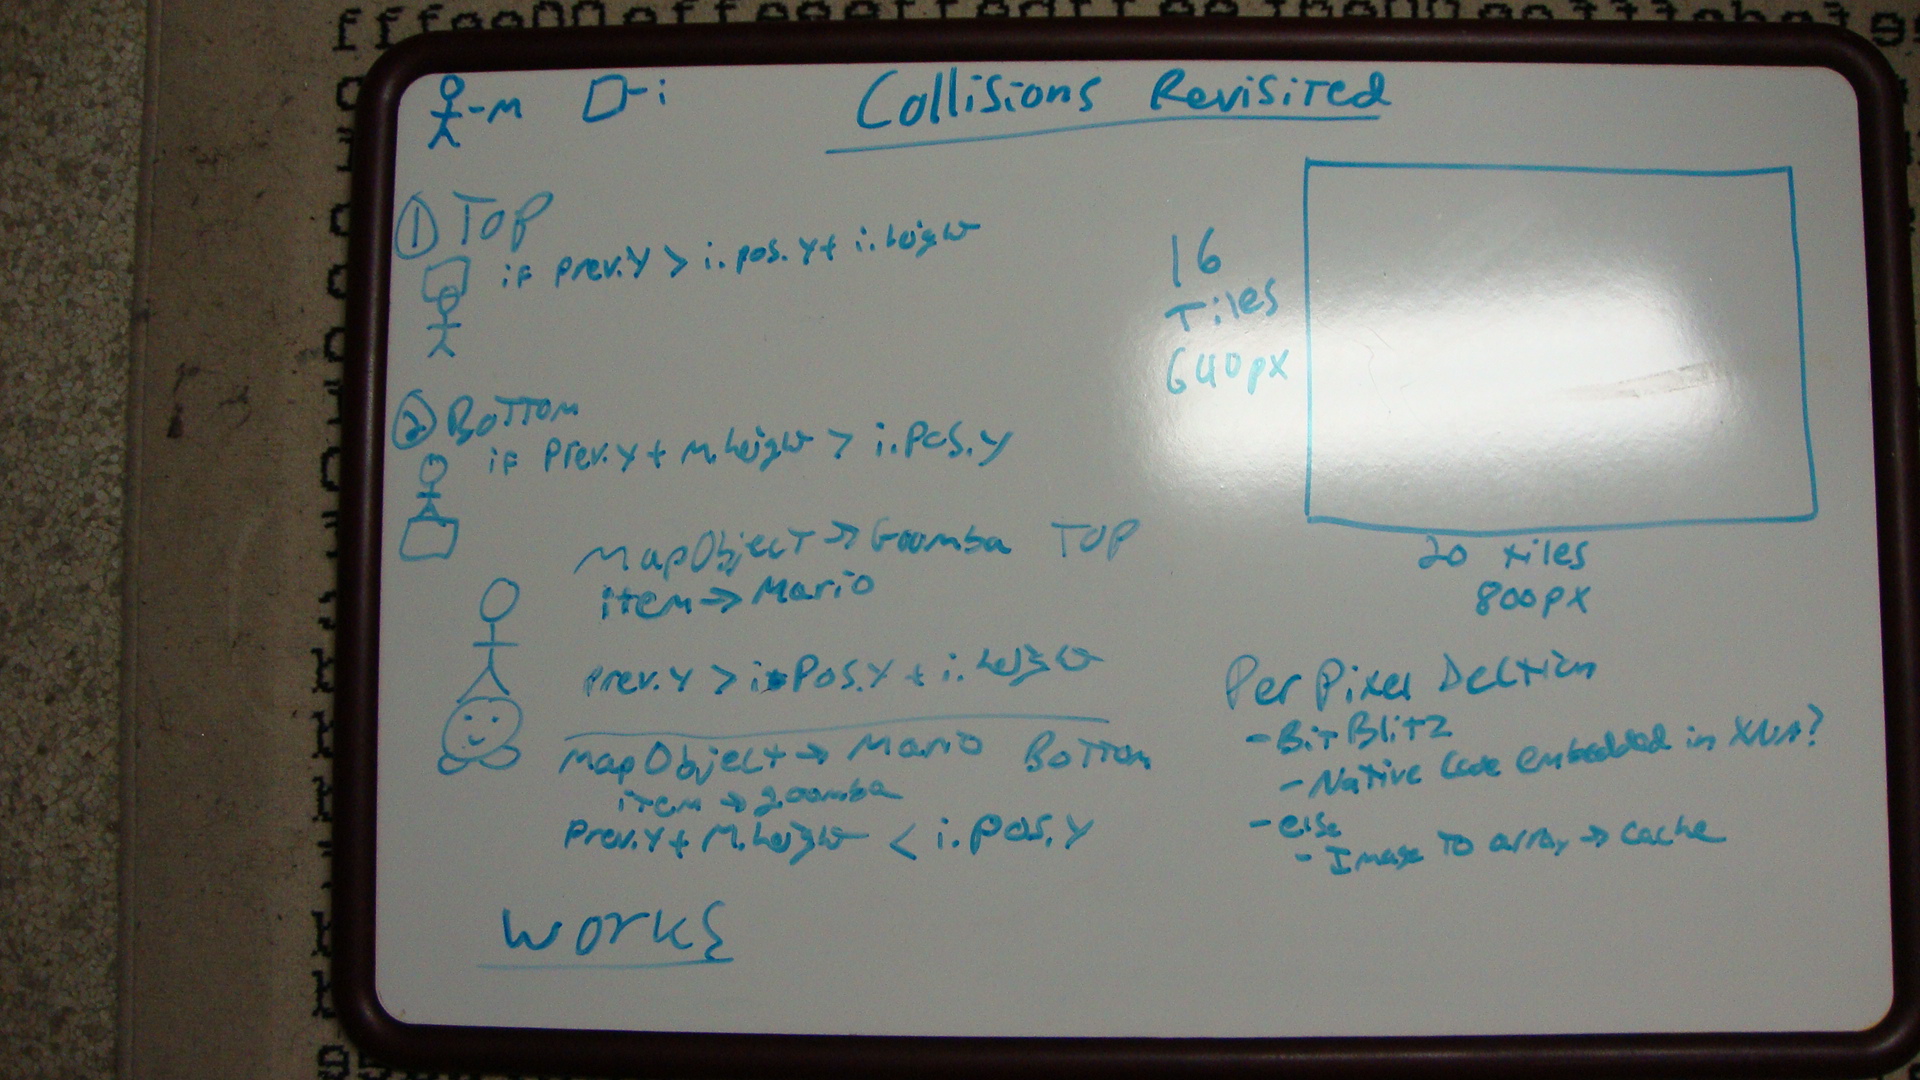 -M
-i
Collisions Revisited
① TOP
if prev.y > i.pos.y + i.height
② Bottom
if prev.y + M.height > i.pos.y
MapObject → Goomba TOP
item → Mario
prev.y > i.Pos.y + i.height
MapObject → Mario Bottom
item → goomba
Prev.y + M.height < i.pos.y
works
16
Tiles
640px
20 tiles
800px
Per Pixel
- BitBlitz
- Native Code embedded in XNA?
- else
- Image to array → cache